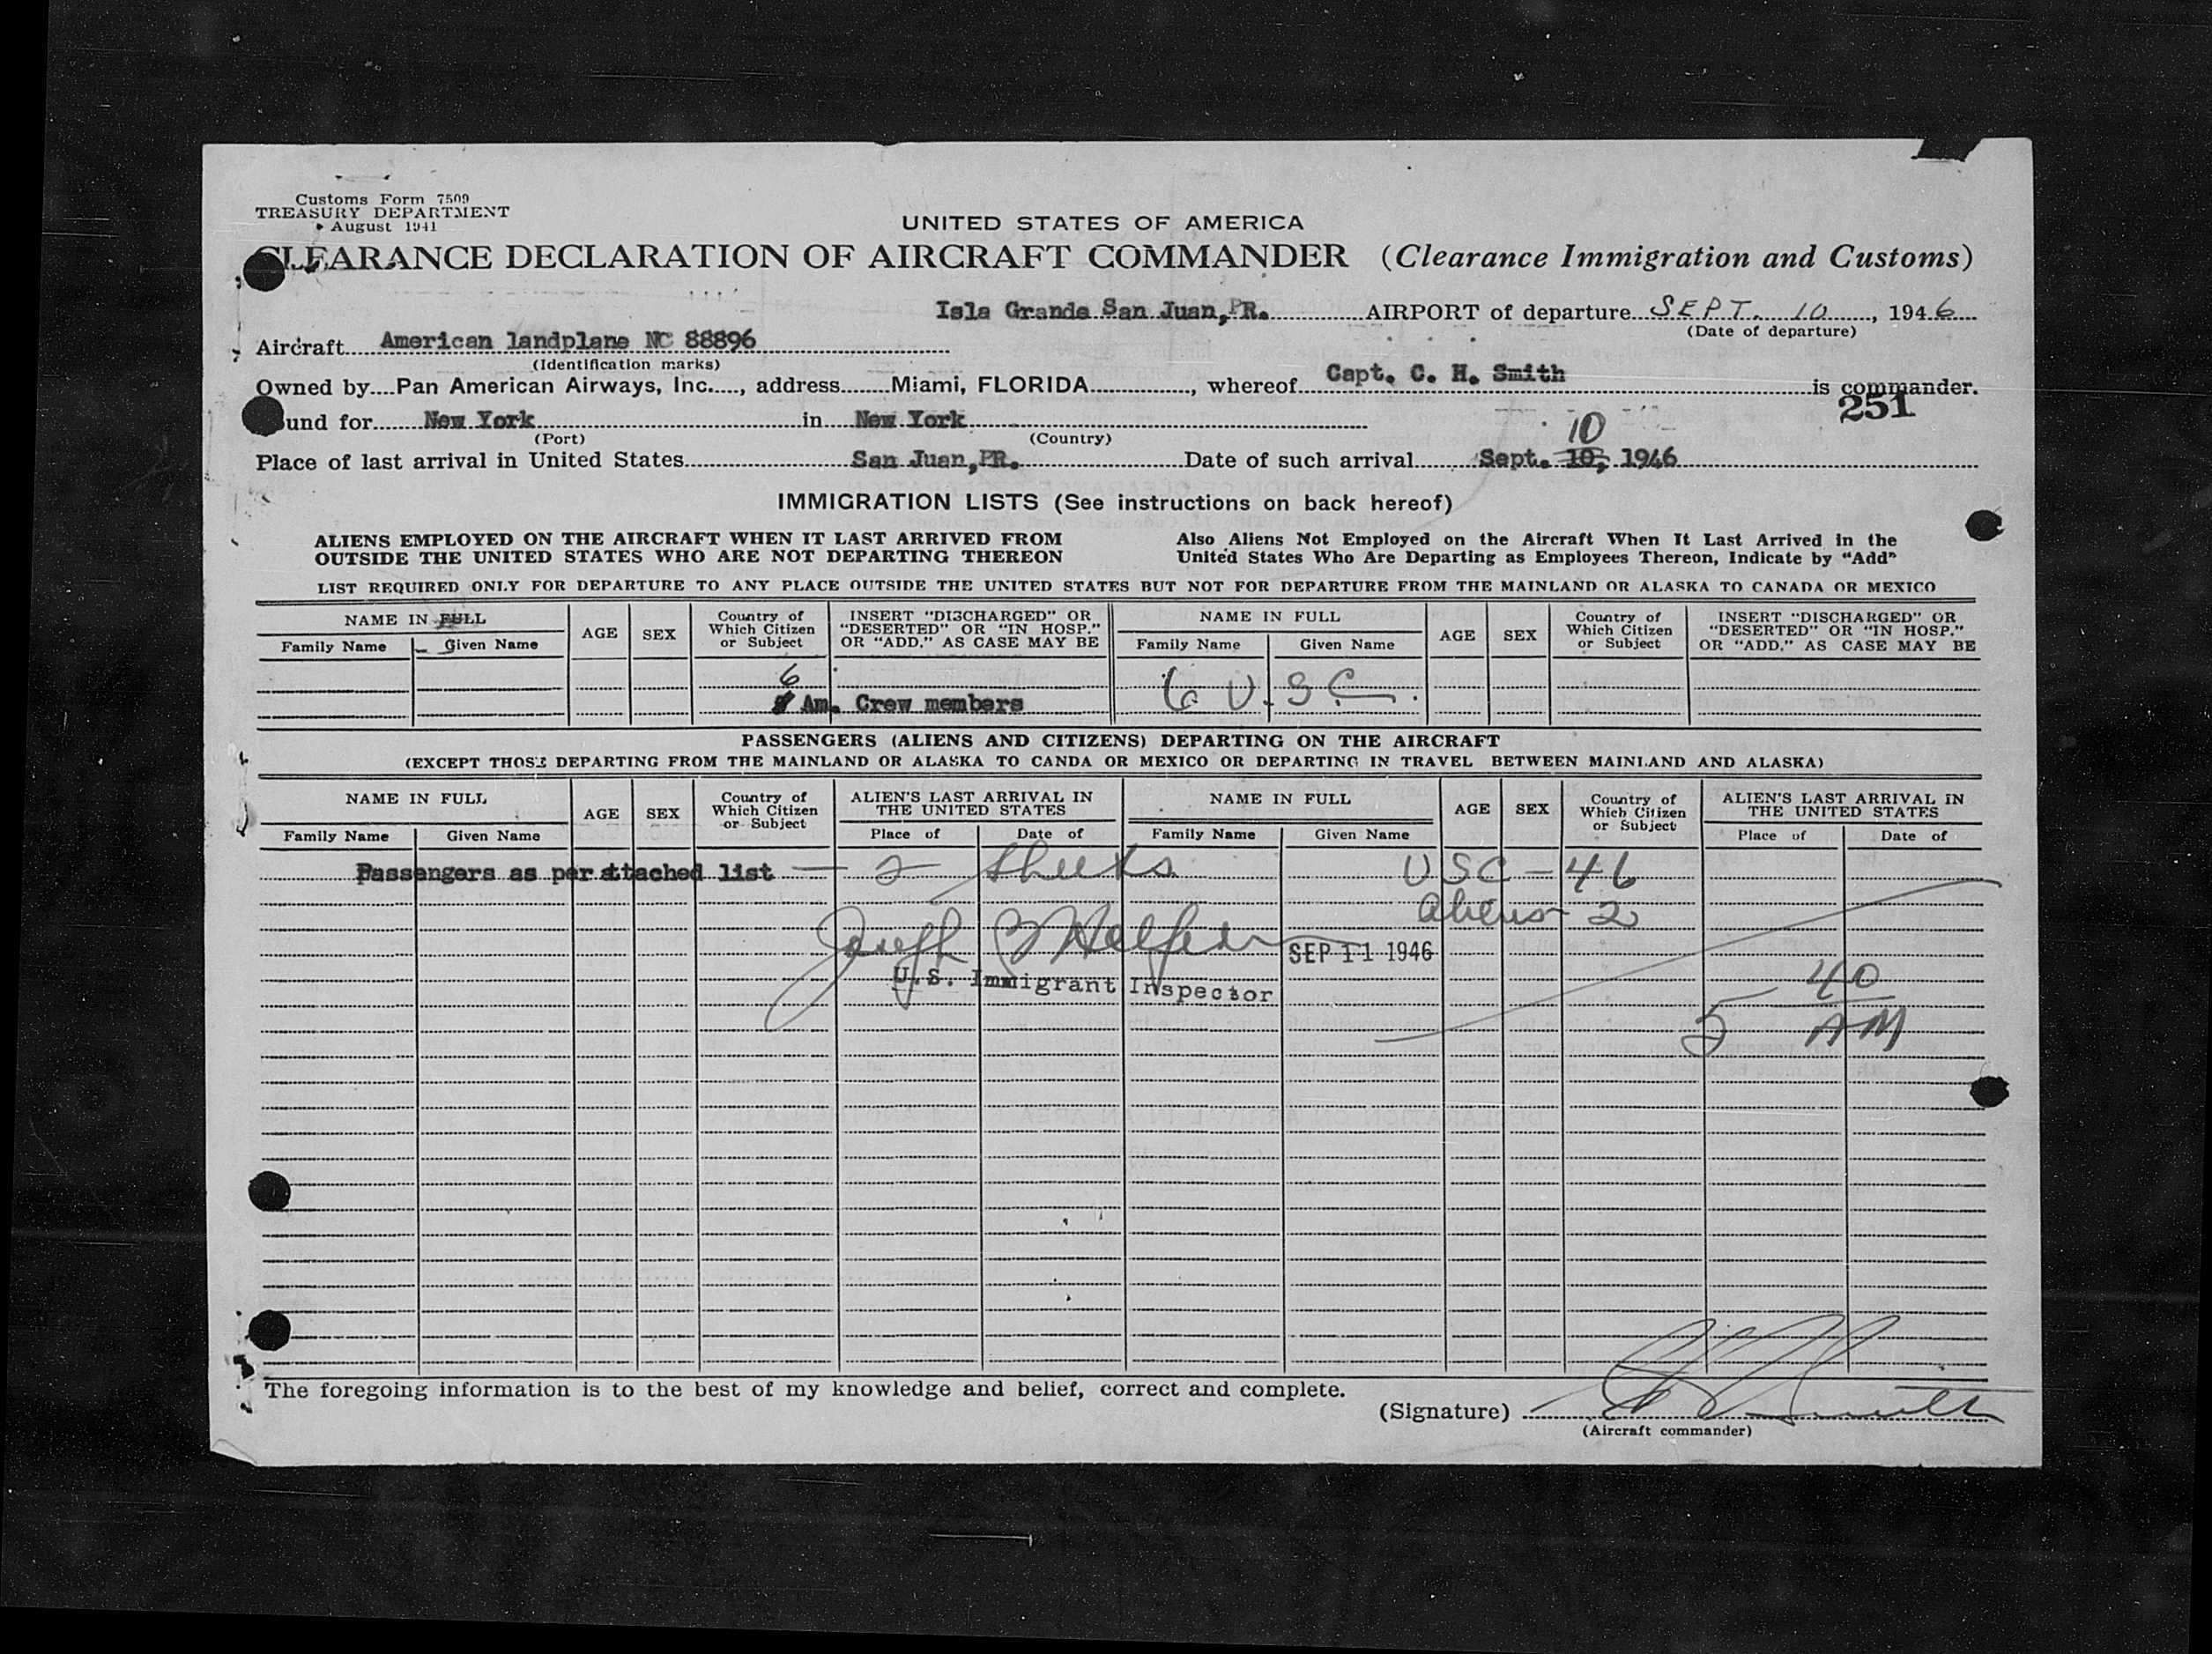 Customs Form 7509
TREASURY DEPARTMENT
August 1941
UNITED STATES OF AMERICA
CLEARANCE DECLARATION OF AIRCRAFT COMMANDER (Clearance Immigration and Customs)
Isla Grande San Juan, PR. AIRPORT of departure SEPT. 10, 1946
(Date of departure)
Aircraft American landplane NC 88896
(Identification marks)
Owned by Pan American Airways, Inc., address Miami, FLORIDA, whereof Capt. C. H. Smith is commander.
251
Bound for New York in New York
(Port) (Country)
10
Place of last arrival in United States San Juan, PR. Date of such arrival Sept. 10, 1946
IMMIGRATION LISTS (See instructions on back hereof)
ALIENS EMPLOYED ON THE AIRCRAFT WHEN IT LAST ARRIVED FROM OUTSIDE THE UNITED STATES WHO ARE NOT DEPARTING THEREON
Also Aliens Not Employed on the Aircraft When It Last Arrived in the United States Who Are Departing as Employees Thereon, Indicate by "Add"
LIST REQUIRED ONLY FOR DEPARTURE TO ANY PLACE OUTSIDE THE UNITED STATES BUT NOT FOR DEPARTURE FROM THE MAINLAND OR ALASKA TO CANADA OR MEXICO
NAME IN FULL AGE SEX Country of Which Citizen or Subject INSERT "DISCHARGED" OR "DESERTED" OR "IN HOSP." OR "ADD," AS CASE MAY BE NAME IN FULL AGE SEX Country of Which Citizen or Subject INSERT "DISCHARGED" OR "DESERTED" OR "IN HOSP." OR "ADD," AS CASE MAY BE
Family Name Given Name Family Name Given Name
6
Am. Crew members 6 U.S.C.
PASSENGERS (ALIENS AND CITIZENS) DEPARTING ON THE AIRCRAFT
(EXCEPT THOSE DEPARTING FROM THE MAINLAND OR ALASKA TO CANDA OR MEXICO OR DEPARTING IN TRAVEL BETWEEN MAINLAND AND ALASKA)
NAME IN FULL AGE SEX Country of Which Citizen or Subject ALIEN'S LAST ARRIVAL IN THE UNITED STATES NAME IN FULL AGE SEX Country of Which Citizen or Subject ALIEN'S LAST ARRIVAL IN THE UNITED STATES
Family Name Given Name Place of Date of Family Name Given Name Place of Date of
Passengers as per attached list — 2 sheets USC - 46
Aliens - 2
Joseph SEP 11 1946
U.S. Immigrant Inspector
5 40 AM
The foregoing information is to the best of my knowledge and belief, correct and complete.
(Signature) C H Smith
(Aircraft commander)